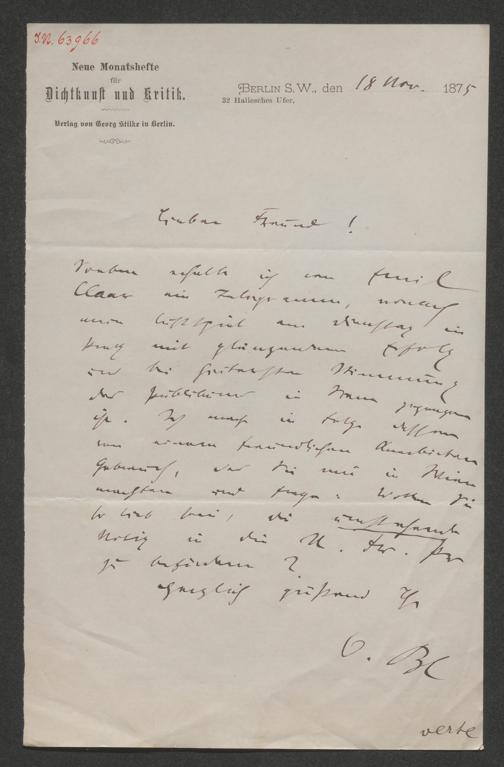 J.N. 63966
Neue Monatshefte
für
Dichtkunst und Kritik.
Verlag von Georg Stilke in Berlin.
BERLIN S.W., den 18 Nov. 1875
32 Hallesches Ufer.
Lieber Freund!
Soeben erhalte ich von Emil
Claar ein Telegramm, wonach
mein Lustspiel am Dienstag in
Prag mit glänzendem Erfolg
und bei heiterster Stimmung
des Publikums in Szene gegangen
ist. Ich mache in Folge dessen
von einem freundlichen Anerbieten
Gebrauch, das Sie mir in Wien
machten und frage: Wollen Sie
so lieb sein, die umstehende
Notiz in die N. Fr. Pr.
zu befördern?
Herzlich grüßend Ihr
O. Bl
verte